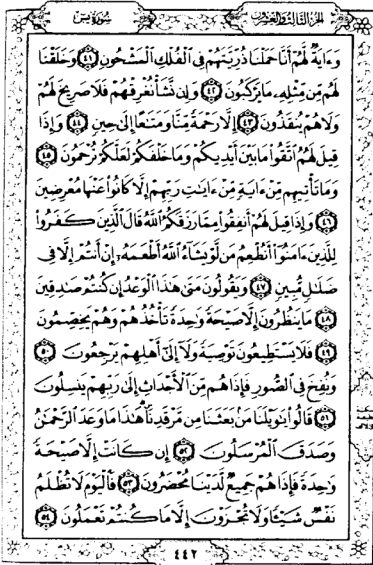 سورة يس الجزء الثالث والعشرون
وَءَايَةٌ لَّهُمْ أَنَّا حَمَلْنَا ذُرِّيَّتَهُمْ فِي الْفُلْكِ الْمَشْحُونِ ٤١ وَخَلَقْنَا
لَهُم مِّن مِّثْلِهِ مَا يَرْكَبُونَ ٤٢ وَإِن نَّشَأْ نُغْرِقْهُمْ فَلَا صَرِيخَ لَهُمْ
وَلَا هُمْ يُنقَذُونَ ٤٣ إِلَّا رَحْمَةً مِّنَّا وَمَتَاعًا إِلَىٰ حِينٍ ٤٤ وَإِذَا
قِيلَ لَهُمُ اتَّقُوا مَا بَيْنَ أَيْدِيكُمْ وَمَا خَلْفَكُمْ لَعَلَّكُمْ تُرْحَمُونَ ٤٥
وَمَا تَأْتِيهِم مِّنْ ءَايَةٍ مِّنْ ءَايَاتِ رَبِّهِمْ إِلَّا كَانُوا عَنْهَا مُعْرِضِينَ
٤٦ وَإِذَا قِيلَ لَهُمْ أَنفِقُوا مِمَّا رَزَقَكُمُ اللَّهُ قَالَ الَّذِينَ كَفَرُوا
لِلَّذِينَ ءَامَنُوا أَنُطْعِمُ مَن لَّوْ يَشَاءُ اللَّهُ أَطْعَمَهُ إِنْ أَنتُمْ إِلَّا فِي
ضَلَالٍ مُّبِينٍ ٤٧ وَيَقُولُونَ مَتَىٰ هَٰذَا الْوَعْدُ إِن كُنتُمْ صَادِقِينَ
٤٨ مَا يَنظُرُونَ إِلَّا صَيْحَةً وَاحِدَةً تَأْخُذُهُمْ وَهُمْ يَخِصِّمُونَ
٤٩ فَلَا يَسْتَطِيعُونَ تَوْصِيَةً وَلَا إِلَىٰ أَهْلِهِمْ يَرْجِعُونَ ٥٠
وَنُفِخَ فِي الصُّورِ فَإِذَا هُم مِّنَ الْأَجْدَاثِ إِلَىٰ رَبِّهِمْ يَنسِلُونَ
٥١ قَالُوا يَاوَيْلَنَا مَن بَعَثَنَا مِن مَّرْقَدِنَا هَٰذَا مَا وَعَدَ الرَّحْمَٰنُ
وَصَدَقَ الْمُرْسَلُونَ ٥٢ إِن كَانَتْ إِلَّا صَيْحَةً
وَاحِدَةً فَإِذَا هُمْ جَمِيعٌ لَّدَيْنَا مُحْضَرُونَ ٥٣ فَالْيَوْمَ لَا تُظْلَمُ
نَفْسٌ شَيْئًا وَلَا تُجْزَوْنَ إِلَّا مَا كُنتُمْ تَعْمَلُونَ ٥٤
٤٤٢